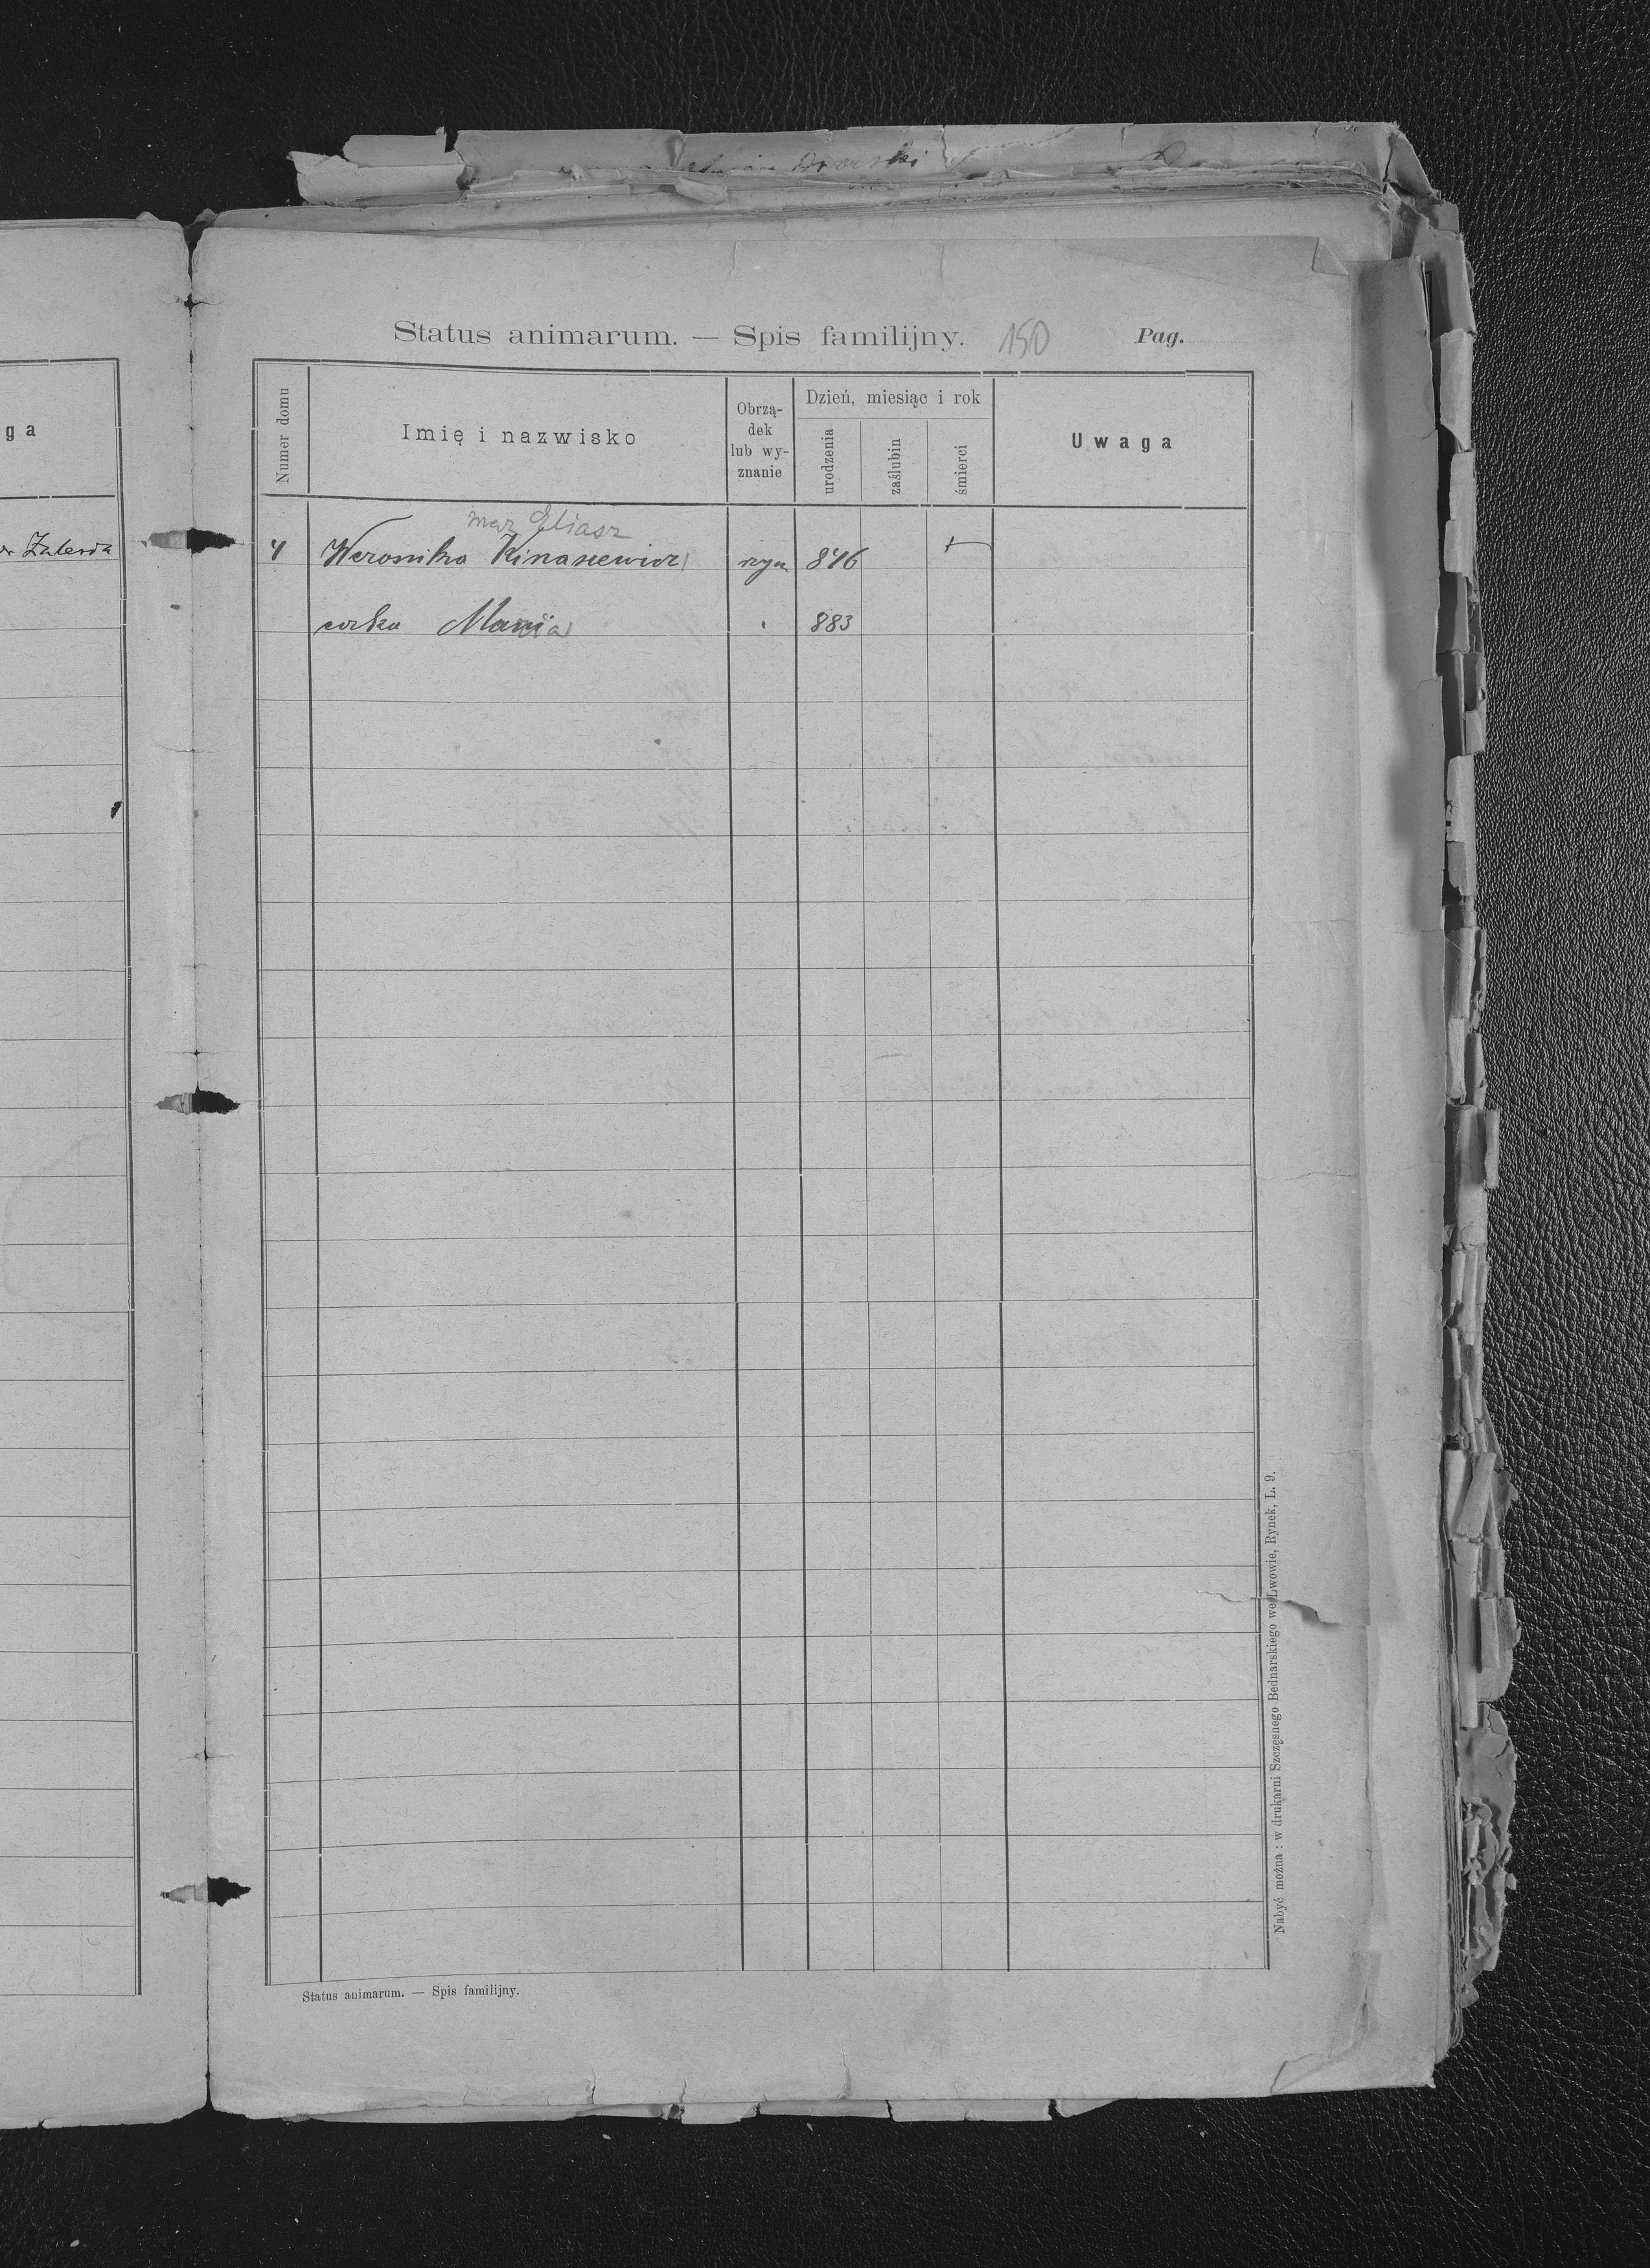 Dworski
Status animarum. — Spis familijny. 150 Pag.
ga
Numer domu
Imię i nazwisko
Obrzą-
dek
lub wy-
znanie
Dzień, miesiąc i rok
urodzenia
zaślubin
śmierci
Uwaga
mąż Eliasz
4 Weronika Kinasiewicz rzym 846 +
córka Maria " 883
Status animarum. — Spis familijny.
Nabyć można: w drukarni Szczęsnego Bednarskiego we Lwowie, Rynek, L. 9.